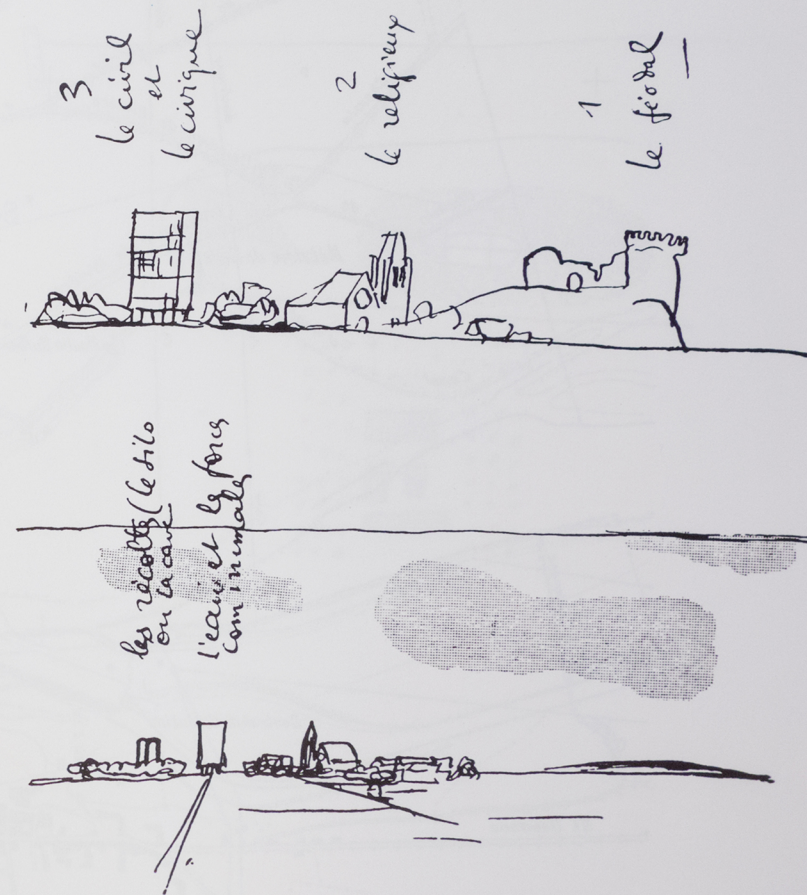 3
le civil
et
le civique
2
le religieux
1
le féodal
les récoltes (le silo
ou la cave
l'eau et les forces
communales